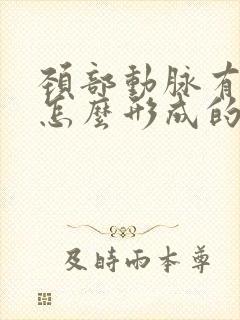 頚部動脉有
怎麼形成的
及時雨本尊